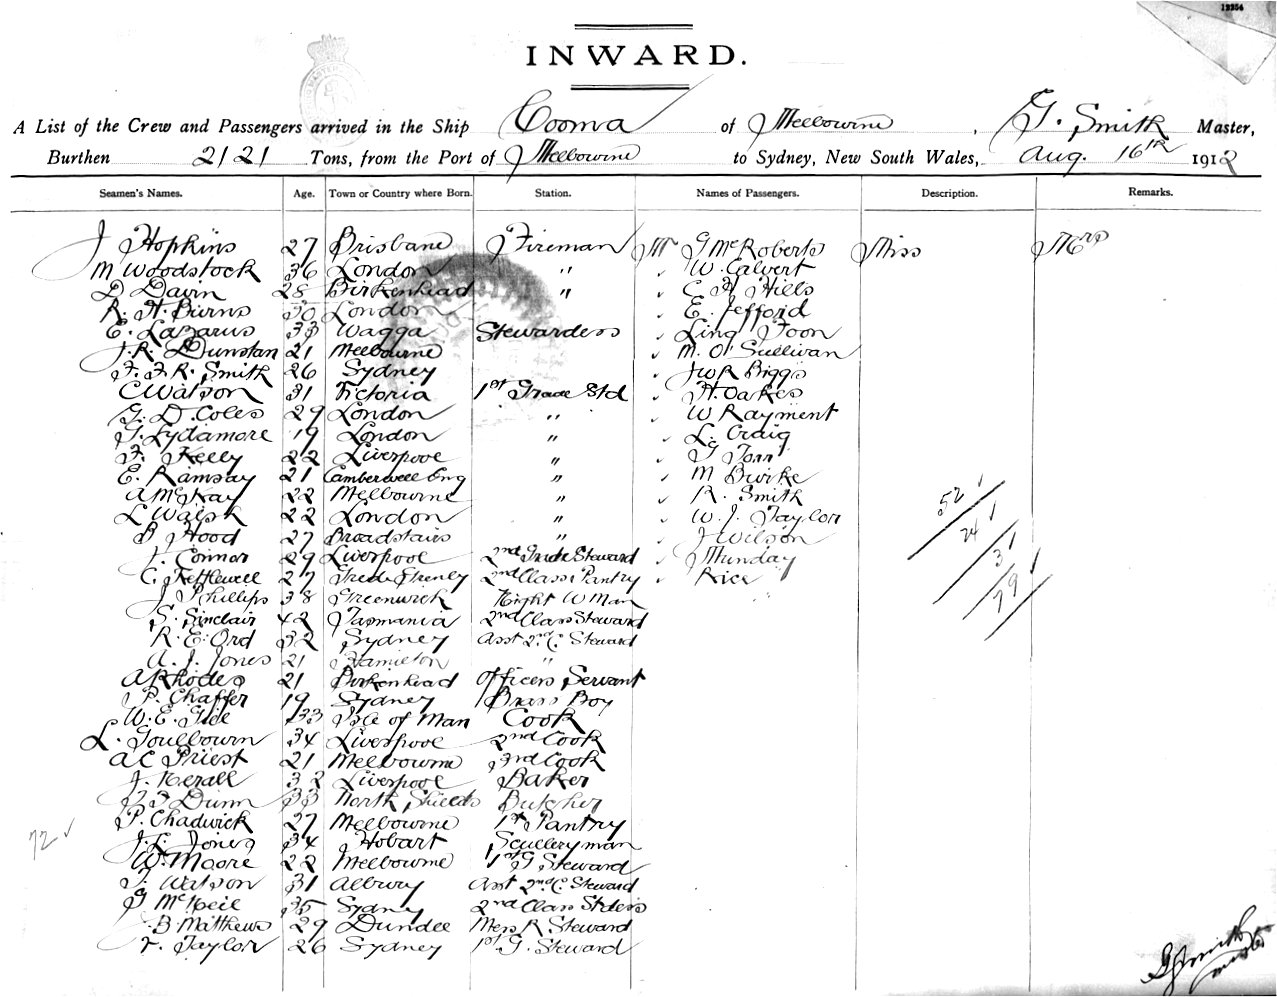 12254
INWARD.
A List of the Crew and Passengers arrived in the Ship Cooma of Melbourne, G. Smith Master,
Burthen 2121 Tons, from the Port of Melbourne to Sydney, New South Wales, Aug. 16th 1912
Seamen's Names. Age. Town or Country where Born. Station. Names of Passengers. Description. Remarks.
J Hopkins 27 Brisbane Fireman Mr G McRoberts Miss Mrs
M Woodstock 36 London " " W. Calvert
D Davin 28 Birkenhead " " C H Hills
R. H. Burns 30 London " E. Jefford
E. Lazarus 33 Wagga Stewardess " Ling Foon
J. R. Dunstan 21 Melbourne " M. O'Sullivan
F. F. R. Smith 26 Sydney " J W R Biggs
C Watson 31 Victoria 1st Grade Std " H. Oakes
G. D. Coles 29 London " " W Rayment
G. Lydamore 19 London " " L. Craig
F. Kelly 22 Liverpool " " G Torr
E. Ramsay 21 Camberwell Eng " " M Burke
A McKay 22 Melbourne " " R. Smith
L Walsh 22 London " " W. J. Taylor
B Hood 27 Broadstairs " " J Wilson
J. Connor 29 Liverpool 2nd Grade Steward " J Munday
C. Kettlewell 27 2nd Class Pantry " Rice
J Phillips 38 Greenwich Night W Man
S. Sinclair 42 Tasmania 2nd Class Steward
R. E. Ord 32 Sydney Asst 2nd C. Steward
A. J. Jones 21 Hamilton "
A Rhodes 21 Birkenhead Officers Servant
P. Chaffer 19 Sydney Brass Boy
W. E. Gide 33 Isle of Man Cook
L. Goulbourn 34 Liverpool 2nd Cook
A C Priest 21 Melbourne 3rd Cook
J. Kerall 32 Liverpool Baker
Dunn 33 North Shields Butcher
P. Chadwick 27 Melbourne 1st Pantry
J. L. Jones 34 Hobart Sculleryman
W. Moore 22 Melbourne 1st G Steward
T. Watson 31 Albury Asst 2nd C. Steward
G McNeil 35 Sydney 2nd Class Stdess
B. Matthews 29 Dundee Mess R. Steward
F. Taylor 26 Sydney 1st G. Steward
52 ✓
24 ✓
3 ✓
79 ✓
72 ✓
G Smith
Master